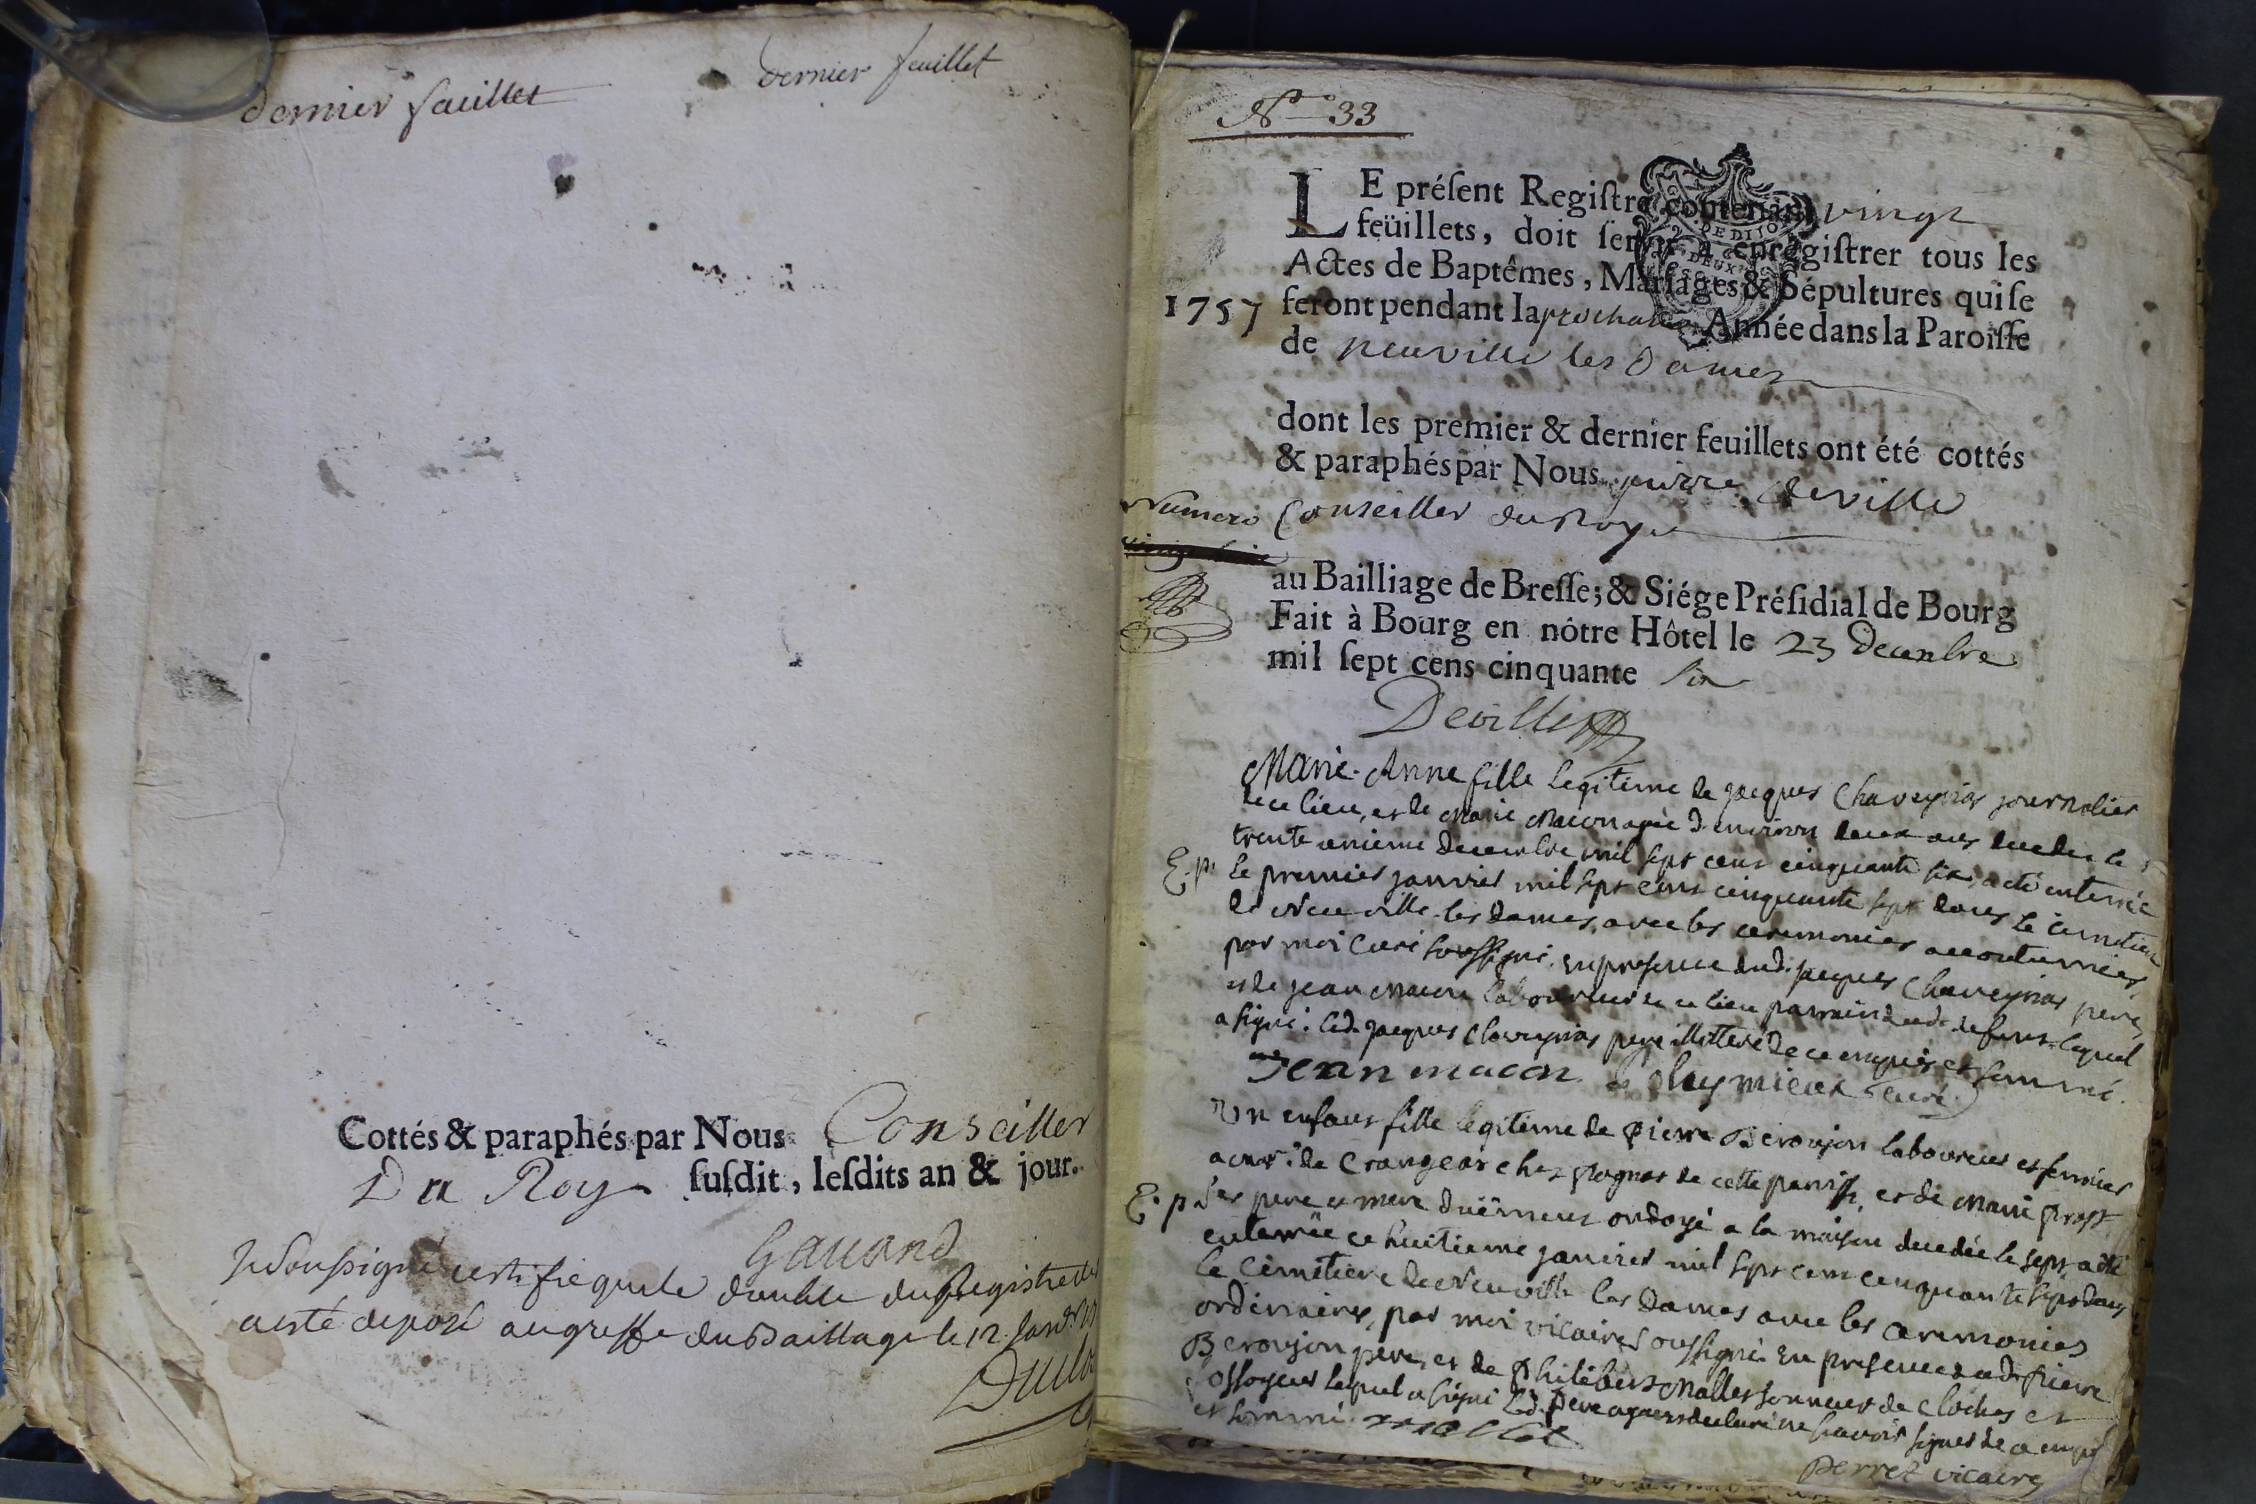 dernier feuillet
dernier feuillet
Cottés & paraphés par Nous Conseiller
Du Roy ſuſdit, leſdits an & jour.
Gauand
Je soussigné certifie que le double du Registre
a esté deposé au greffe du Baillage le 12 Janv
N° 33
LE préſent Regiſtre contenant vingt
feüillets, doit ſervir à enregiſtrer tous les
DE DIJON
DEUX
Actes de Baptêmes, Mariages & Sépultures qui ſe
1757 feront pendant la prochaine Année dans la Paroiſſe
de neuville les Dames
dont les premier & dernier feuillets ont été cottés
& paraphés par Nous pierre deville
Numero Conseiller du Roy
au Bailliage de Breſſe; & Siége Préſidial de Bourg
Fait à Bourg en nôtre Hôtel le 23 Decembre
mil ſept cens cinquante six
Deville
Marie-Anne fille legitime de jacques Chaveyrias journalier
de ce lieu, et de Marie Macon agée d'environ deux ans decedee le
trente unieme decembre mil sept cens cinquante six, a été enterrée
E. p. le premier janvier mil sept cens cinquante sept dans le cimetiere
de Neuville-les dames, avec les ceremonies accoutumées,
par moi Curé soussigné. en presence dud. jacques Chaveyrias pere,
et de jean Macon laboureur de ce lieu parrain de lad. defunte lequel
a signé. led. jacques Chaveyrias pere illitteré de ce enquis et sommé.
Jean macon curé
Un enfant fille legitime de pierre Beroujon laboureur et fermier
de cette paroisse, et de Marie prost
E. p. ses pere et mere duëment ondoyé a la maison decedée le sept a été
enterrée ce huitieme janvier mil sept cent cinquante sept dans
le Cimetiere de Neuville les Dames avec les ceremonies
ordinaires, par moi vicaire soussigné en presence dud. pierre
Beroujon pere, et de Philibert Mallet sonneur de cloches et
fossoyeur lequel a signé led. pere ayant declaré ne sçavoir signer de ce enquis
et sommé. mallet
perret vicaire